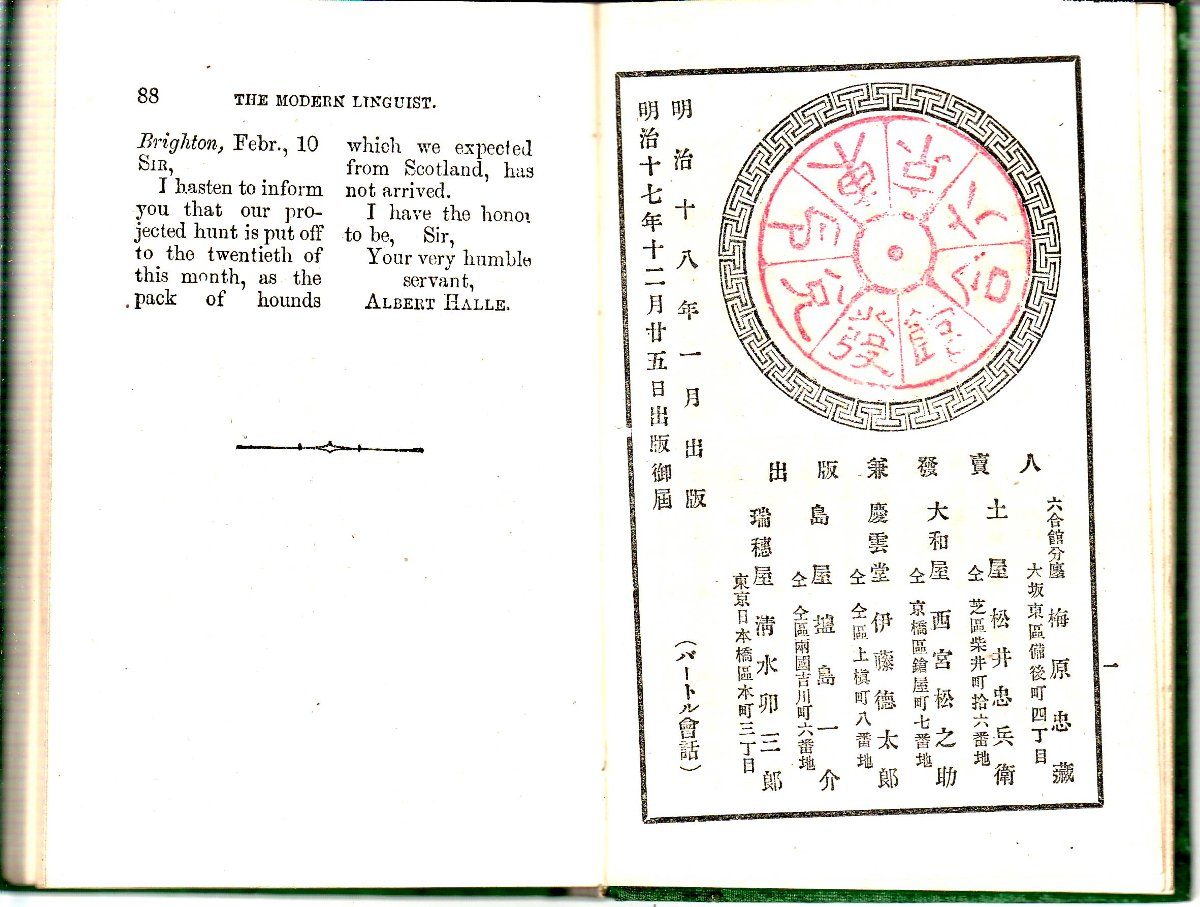 88 THE MODERN LINGUIST.
Brighton, Febr., 10
SIR,
I hasten to inform
you that our pro-
jected hunt is put off
to the twentieth of
this month, as the
pack of hounds
which we expected
from Scotland, has
not arrived.
I have the honor
to be, Sir,
Your very humble
servant,
ALBERT HALLE.
東京六合館發兌印
明治十七年十二月廿五日出版御届
明治十八年一月出版
(バートル會話)
出版兼發賣人
東京日本橋區本町三丁目
瑞穗屋 淸水卯三郎
仝 仝區兩國吉川町六番地
島屋 塩島一介
仝 仝區上槇町八番地
慶雲堂 伊藤德太郎
仝 京橋區鎗屋町七番地
大和屋 西宮松之助
仝 芝區柴井町拾六番地
土屋 松井忠兵衛
六合館分廛
大坂東區備後町四丁目
梅原忠藏
一